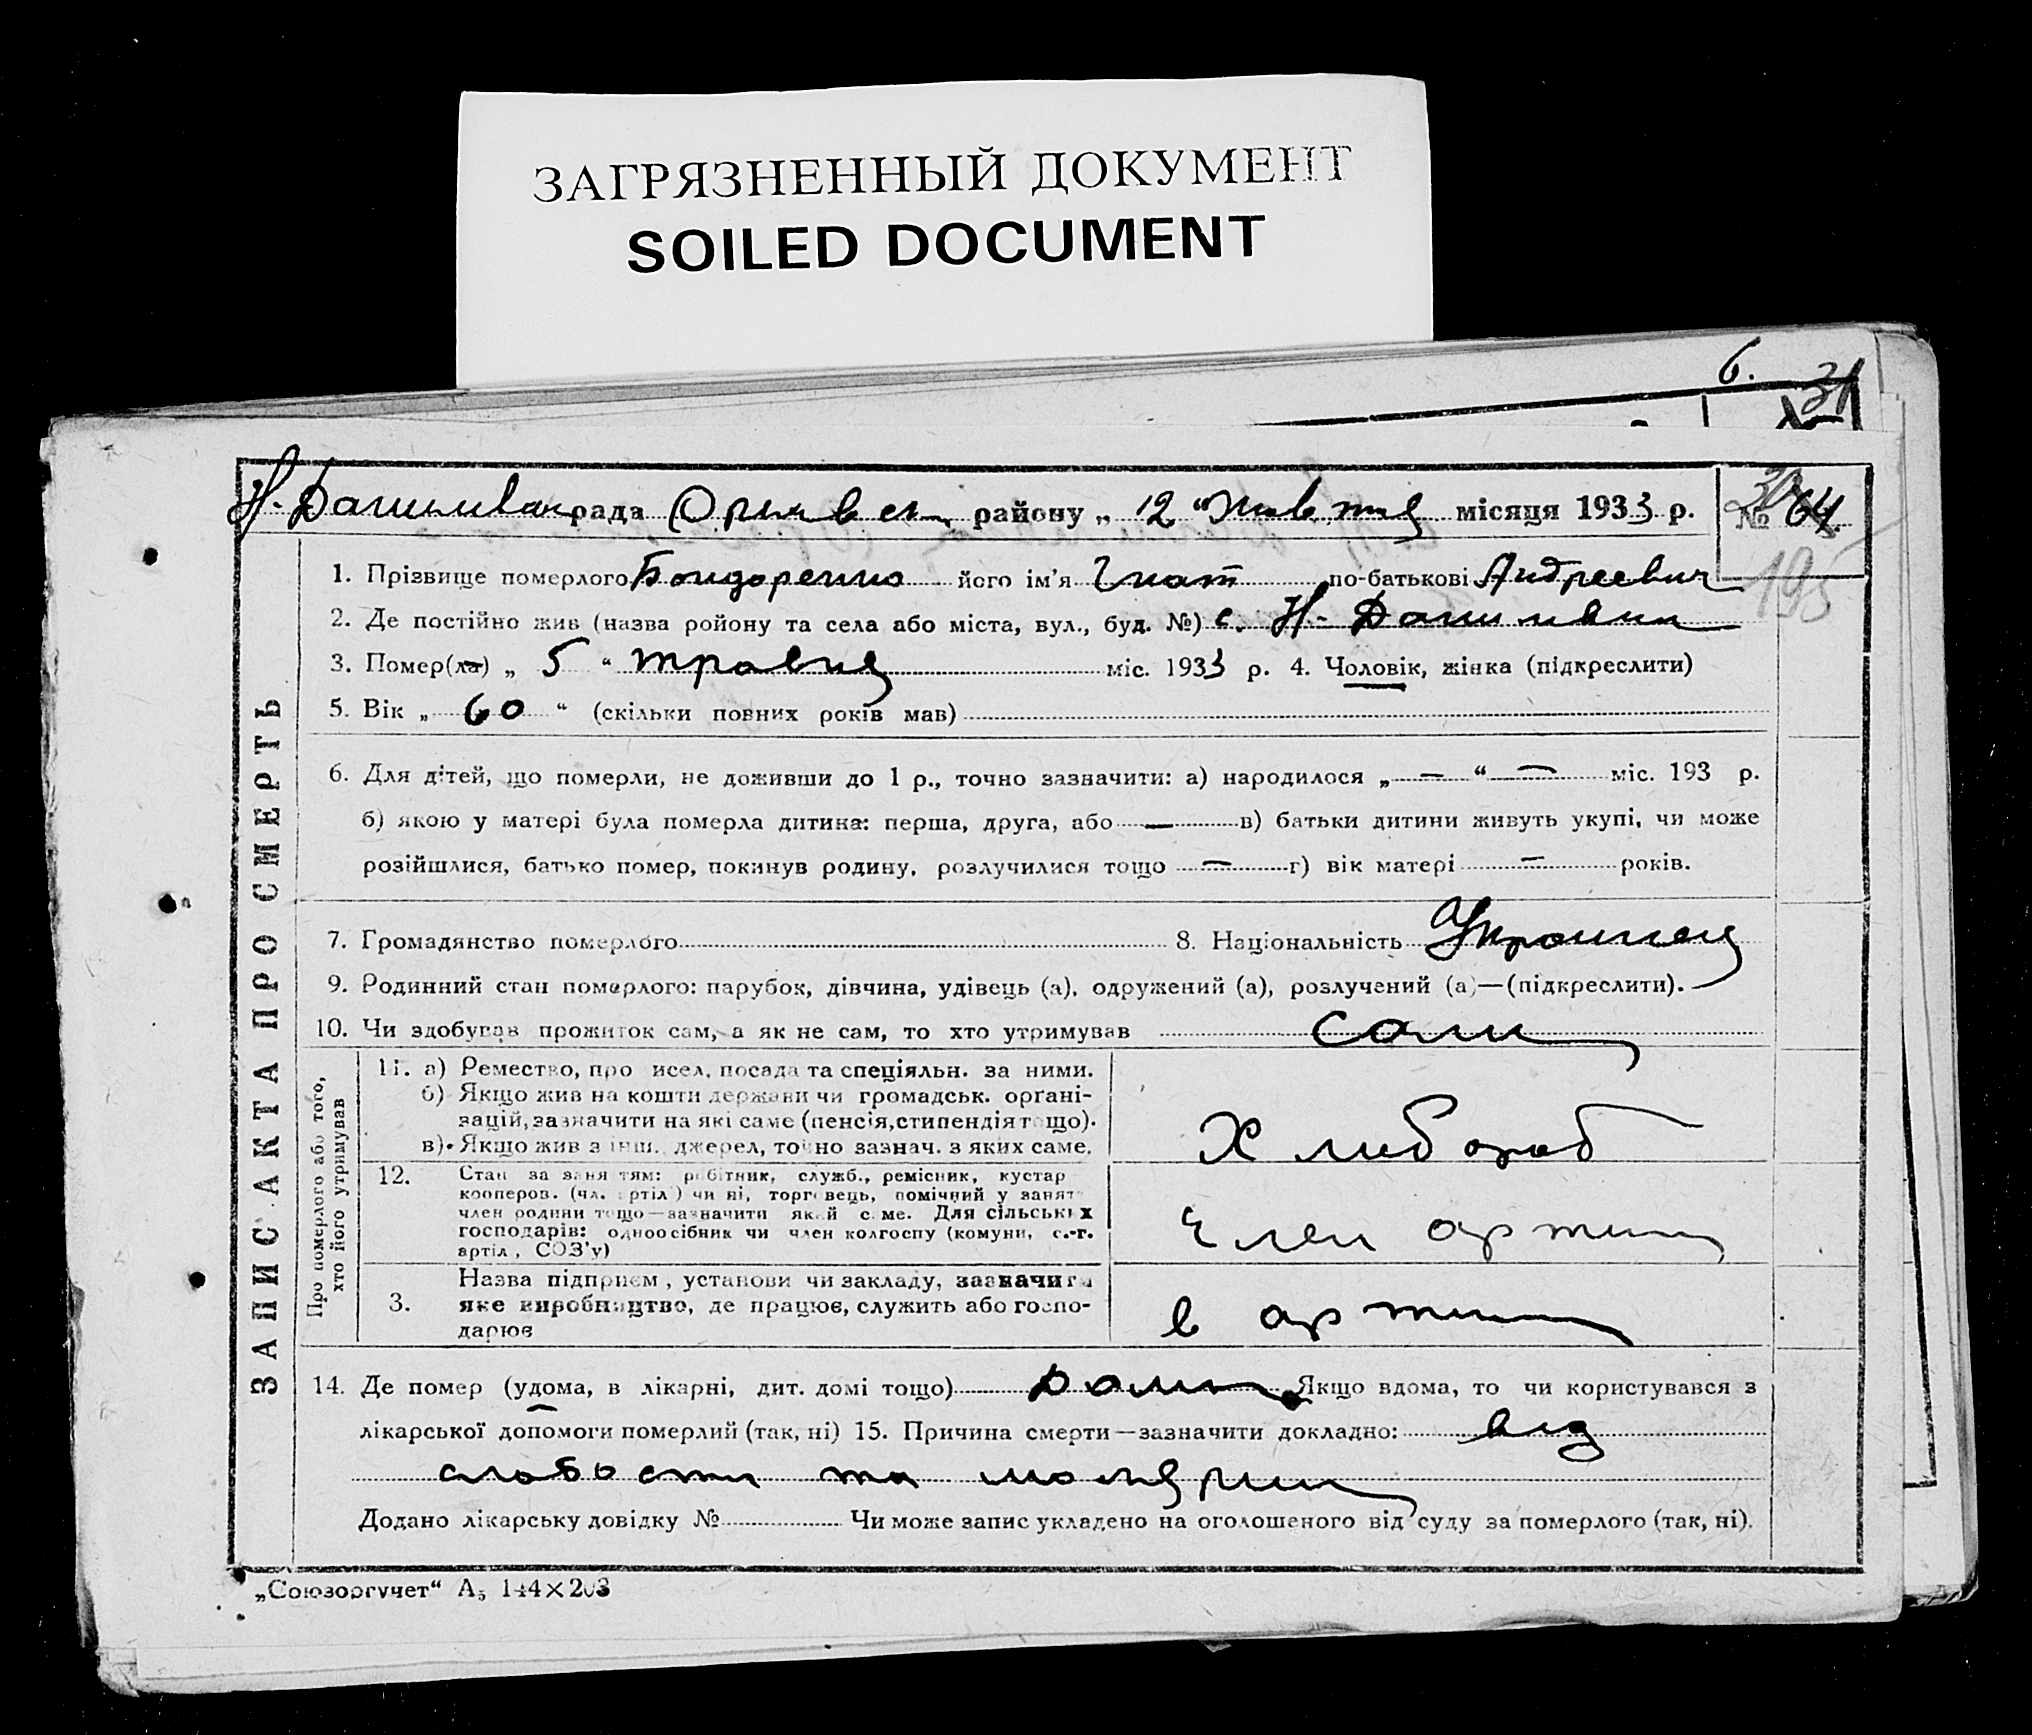 ЗАГРЯЗНЕННЫЙ ДОКУМЕНТ
SOILED DOCUMENT
6. 31
Н-Данилівська рада Оріхівськ району „ 12 “ жовтня місяця 1933 р. № 64.
195
ЗАПИС АКТА ПРО СМЕРТЬ
1. Прізвище померлого Бондаренко його ім’я Гнат по-батькові Андреевич
2. Де постійно жив (назва ройону та села або міста, вул., буд. №) с. Н-Данилівка
3. Помер(ла) „ 5 “ травня міс. 1933 р. 4. Чоловік, жінка (підкреслити)
5. Вік „ 60 “ (скільки повних років мав)
6. Для дітей, що померли, не доживши до 1 р., точно зазначити: а) народилося „ — “ — міс. 193 р.
б) якою у матері була померла дитина: перша, друга, або — в) батьки дитини живуть укупі, чи може
розійшлися, батько помер, покинув родину, розлучилися тощо — г) вік матері — років.
7. Громадянство померлого 8. Національність Украинец
9. Родинний стан померлого: парубок, дівчина, удівець (а), одружений (а), розлучений (а)—(підкреслити).
10. Чи здобував прожиток сам, а як не сам, то хто утримував сам
Про померлого або того, хто його утримував
11. а) Ремество, про исел, посада та спеціяльн. за ними.
б) Якщо жив на кошти держави чи громадськ. орґані-
зацій, зазначити на які саме (пенсія, стипендія тощо).
в) Якщо жив з інш. джерел, точно зазнач. з яких саме.
Хлибороб
12. Стан за заняттям: робітник, служб., ремісник, кустар
кооперов. (чл. артіл) чи ні, торговець, помічний у занят
член родини тощо—зазначити який саме. Для сільських
господарів: одноосібник чи член колгоспу (комуни, с.-г.
артіл, СОЗ’у)
член артили
3. Назва підприєм, установи чи закладу, зазначити
яке виробництво, де працює, служить або госпо-
дарює
в артили
14. Де помер (удома, в лікарні, дит. домі тощо) дома Якщо вдома, то чи користувався з
лікарської допомоги померлий (так, ні) 15. Причина смерти—зазначити докладно: від
слабости та малярии
Додано лікарську довідку № Чи може запис укладено на оголошеного від суду за померлого (так, ні).
„Союзоргучет“ А5 144×203